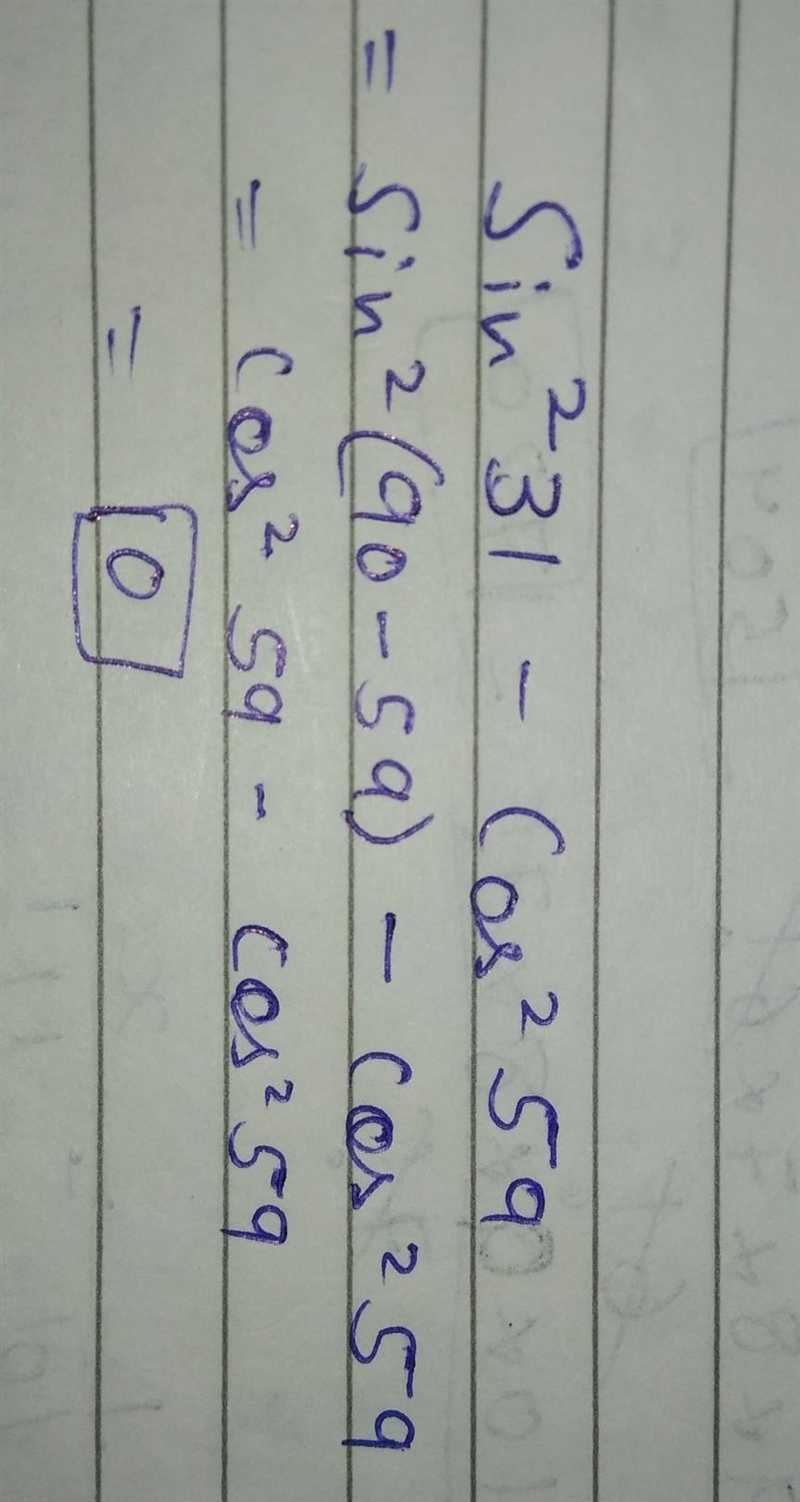 Sin² 31 - Cos² 59
= Sin² (90 - 59) - Cos² 59
= Cos² 59 - Cos² 59
= 0